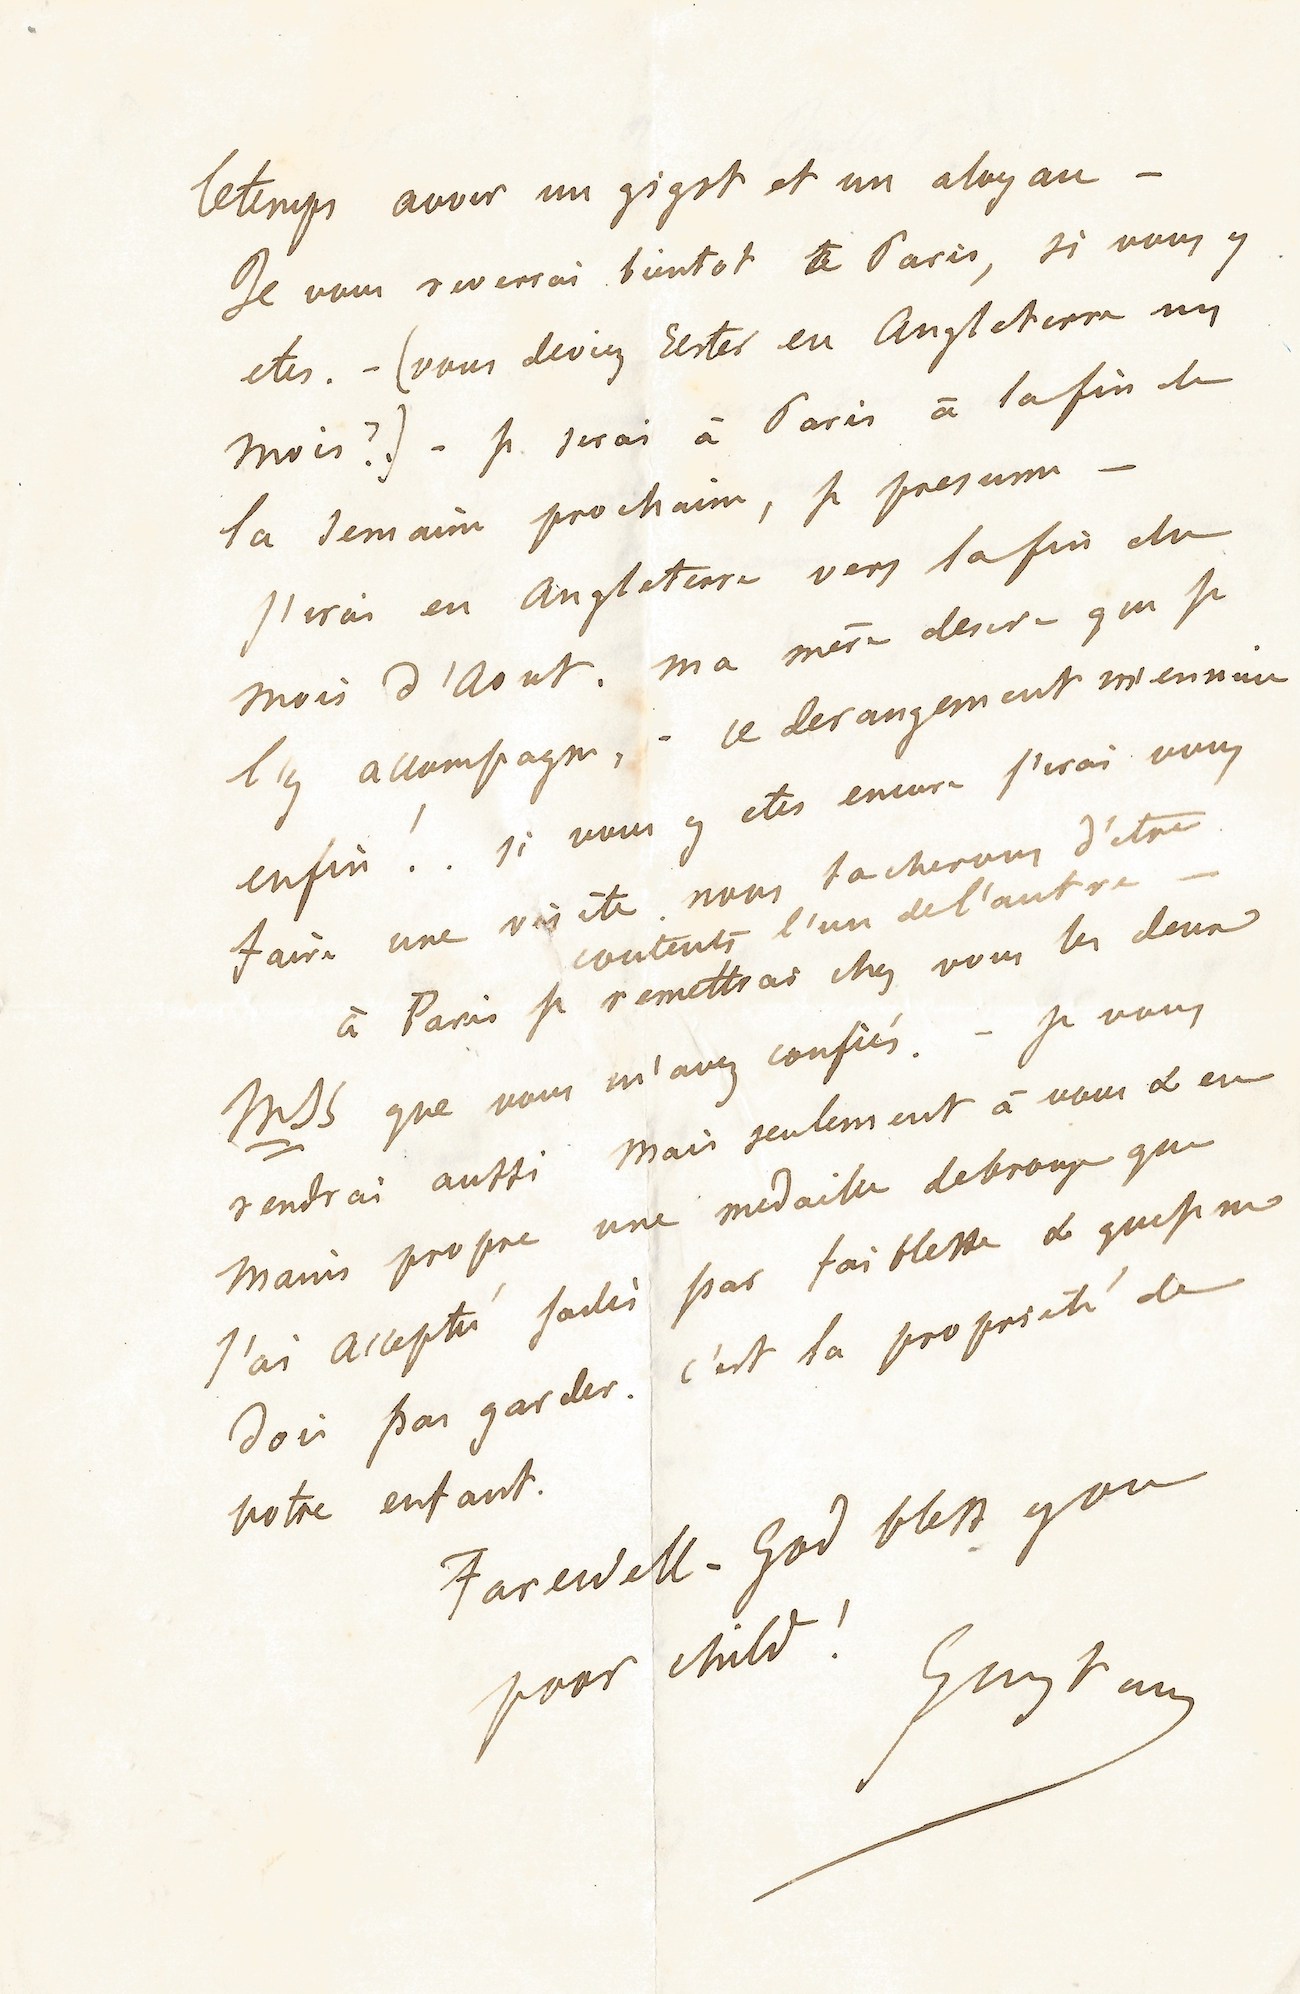 letemps avoir un gigot et un aloyau –
Je vous reverrai bientot à Paris, si vous y
etes. – (vous deviez rester en Angleterre un
mois?.) – je serai à Paris à la fin de
la semaine prochaine, je presume –
J'irai en Angleterre vers la fin du
mois d'Aout. ma mère desire que je
l'y accompagne, – ce derangement m'ennuie
enfin!.. si vous y etes encore j'irai vous
faire une visite. nous tacherons d'être
contents l'un de l'autre –
à Paris je remettrai chez vous les deux
MSS que vous m'avez confiés. – je vous
rendrai aussi mais seulement à vous & en
mains propre une medaille de bronze que
J'ai accepté jadis par faiblesse & que je ne
dois pas garder. c'est la proprieté de
votre enfant.
Farewell – God bless you
poor child!
Gustave